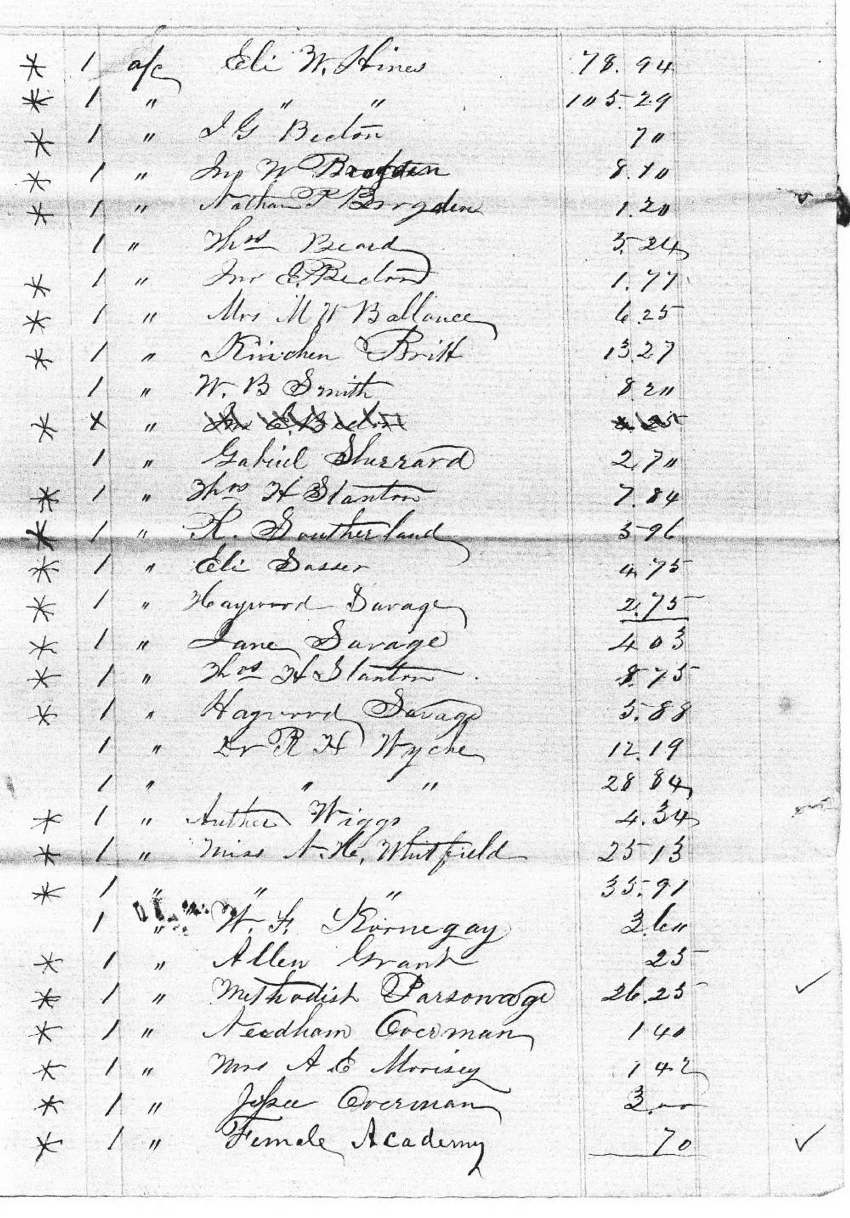 * 1 a/c Eli W. Hines 78.94
* 1 " " " 105.29
* 1 " J G Becton 70
* 1 " Jno W Brogden 8.70
* 1 " Nathan P Brogden 1.20
1 " Thos Beard 5.24
* 1 " Jno E. Becton 1.77
* 1 " Mrs M W Ballance 6.25
* 1 " Kinchen Britt 13.27
1 " W. B Smith 8.20
* x " Jno E. Becton
1 " Gabriel Sherrard 2.70
* 1 " Thos H Stanton 7.84
* 1 " R. Southerland 5 96
* 1 " Eli Sasser 4.75
* 1 " Haywood Savage 2.75
* 1 " Jane Savage 4 03
* 1 " Thos H Stanton 8 75
* 1 " Haywood Savage 5.88
1 " Dr R H Wyche 12.19
1 " " " 28 84
* 1 " Auther Wiggs 4.34
* 1 " Miss N. H. Whitfield 25 13
* 1 " " " 35.91
1 " W. F. Kornegay 3.60
* 1 " Allen Grant 25
* 1 " Methodist Parsonage 26.25 ✓
* 1 " Needham Overman 1 40
* 1 " Mrs A E Morisey 1 42
* 1 " Jesse Overman 3.00
* 1 " Female Academy 70 ✓